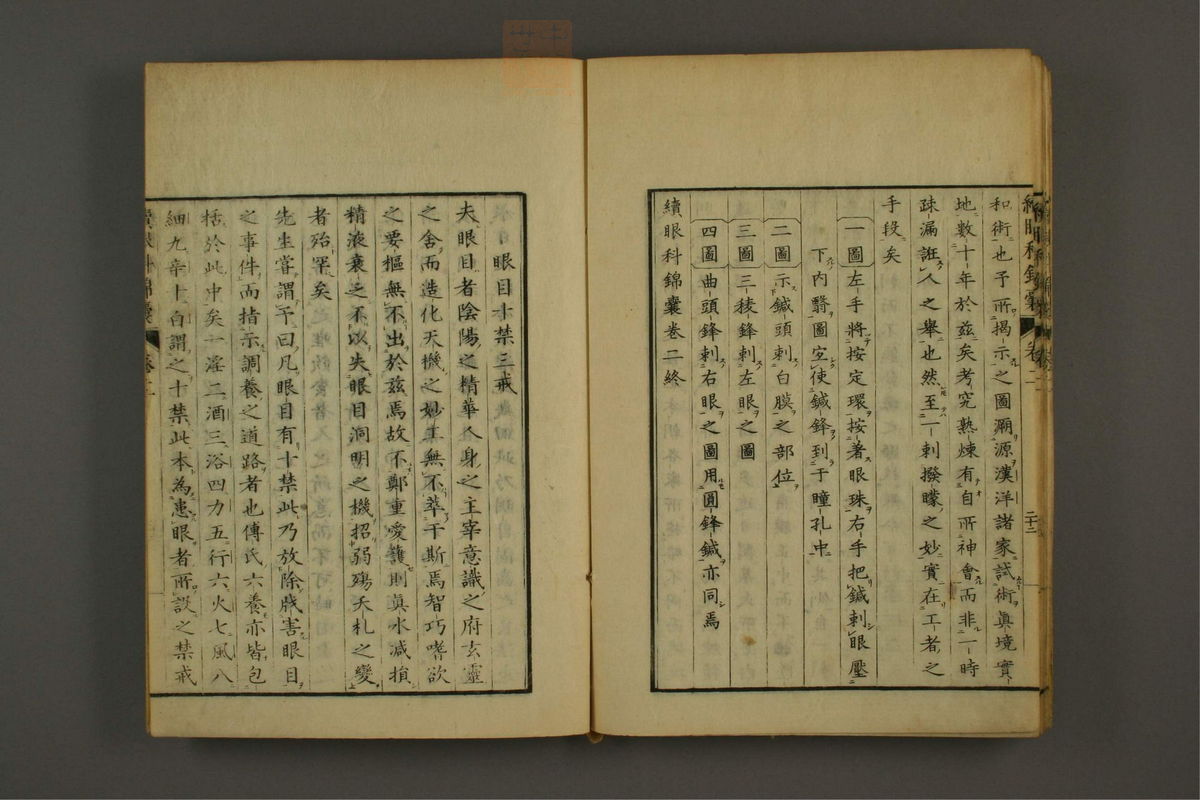 續眼科錦囊 卷二 二十二
和術也予所揭示之圖溯源漢洋諸家試術眞境實
地數十年於茲矣考究熟煉有自所神會而非一時
疎漏誑人之舉也然至一刺撥矇之妙實在工者之
手段矣
一圖 左手將按定環按著眼珠右手把鍼刺眼壓
下內翳圖宜使鍼鋒到于瞳孔中
二圖 示鍼頭刺白膜之部位
三圖 三稜鋒刺左眼之圖
四圖 曲頭鋒刺右眼之圖用圓鋒鍼亦同焉
續眼科錦囊卷二終
眼目十禁三戒
夫眼目者陰陽之精華人身之主宰意識之府玄靈
之舍而造化天機之妙其無不萃于斯焉智巧嗜欲
之要樞無不出於茲焉故不鄭重愛護則眞水減損
精液衰乏不以失眼目洞明之機招弱殤夭札之變
者殆罕矣
先生嘗謂予曰凡眼目有十禁此乃放除戕害眼目
之事件而指示調養之道路者也傅氏六養亦皆包
栝於此中矣一淫二酒三浴四力五行六火七風八
細九辛十白謂之十禁此本為患眼者所設之禁戒
續眼科錦囊 卷二